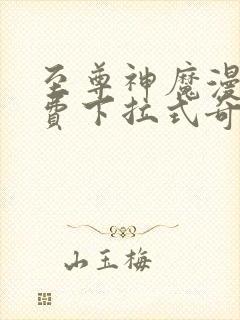 至尊神魔漫
费下拉式奇
山玉梅